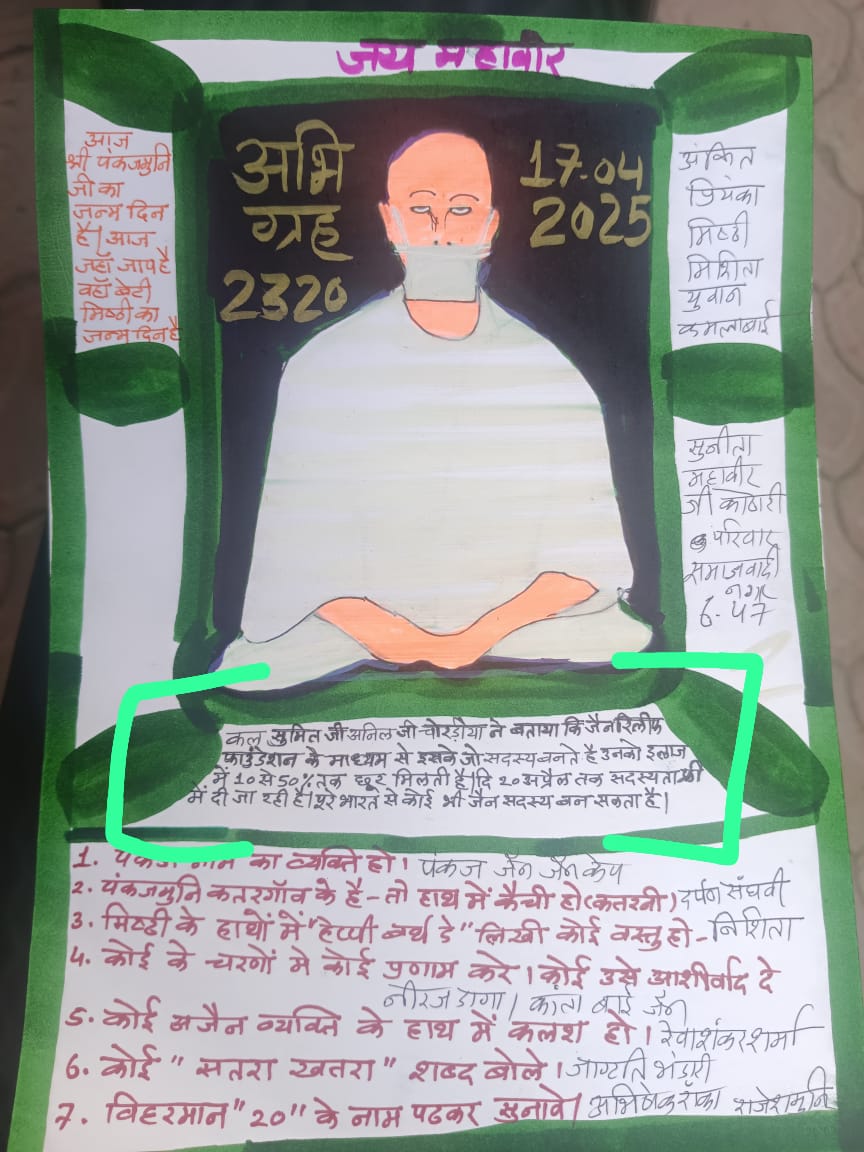 जय महावीर
आज
श्री पंकजमुनि
जी का
जन्म दिन
है। आज
जहाँ जाप है
वहाँ बेटी
मिष्ठी का
जन्म दिन है
अभि
ग्रह
2320
17.04
2025
अंकित
प्रियंका
मिष्ठी
मिशिता
युवान
कमलाबाई
सुनीता
महावीर
जी कोठारी
परिवार
समाजवादी
नगर
6-47
कल सुमित जी अनिल जी चोरड़ीया ने बताया कि जैन रिलीफ
फाउंडेशन के माध्यम से इसके जो सदस्य बनते है उनको इलाज
में 10 से 50% तक छूट मिलती है। दि 20 अप्रैल तक सदस्यता फ्री
में दी जा रही है। पूरे भारत से कोई भी जैन सदस्य बन सकता है।
1. पंकज नाम का व्यक्ति हो। पंकज जैन जैन केप
2. पंकजमुनि कतरगाँव के है - तो हाथ में कैंची हो (कतरनी) दर्पण संघवी
3. मिष्ठी के हाथों में "हेप्पी बर्थ डे" लिखी कोई वस्तु हो - निशिता
4. कोई के चरणों में कोई प्रणाम करे। कोई उसे आशीर्वाद दे
नीरज डागा। कांता बाई जैन
5. कोई अजैन व्यक्ति के हाथ में कलश हो। रेवाशंकर शर्मा
6. कोई "सतरा खतरा" शब्द बोले। जागृति भंडारी
7. विहरमान "20" के नाम पढकर सुनावे। अभिषेक रांका राजेशमुनि